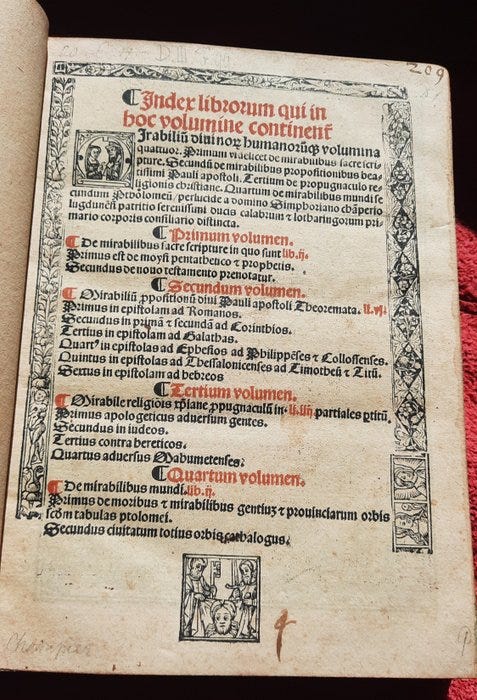 209
¶Index librorum qui in
hoc volumine continent̃
Mirabiliũ diuinorũ humanorũq₃ volumina
quattuor. Primum videlicet de mirabilibus sacre scri-
pture. Secundũ de mirabilibus propositionibus bea-
tissimi Pauli apostoli. Tertium de propugnaculo re-
ligionis christiane. Quartum de mirabilibus mundi se
cundum Ptholomeũ / perlucide a domino Simphoriano chãperio
lugdunẽsi patritio serenissimi ducis calabrum ⁊ lotharingorum pri-
mario corporis consiliario distincta.
¶Primum volumen.
¶De mirabilibus sacre scripture in quo sunt lib.ij.
Primus est de moysi pentatheuco ⁊ prophetis.
Secundus de nouo testamento prenotatur.
¶Secundum volumen.
¶Mirabiliũ ꝓpositionũ diui Pauli apostoli Theoremata. li.vj.
Primus in epistolam ad Romanos.
Secundus in primã ⁊ secundã ad Corinthios.
Tertius in epistolam ad Galathas.
Quartꝰ in epistolas ad Ephesios ad Philippẽses ⁊ Collossenses.
Quintus in epistolas ad Thessalonicenses ad Timotheũ ⁊ Titũ.
Sextus in epistolam ad hebreos
¶Tertium volumen.
¶Mirabile religiõis xp̃iane ꝓpugnaculũ in. li.iiij. partiales ꝑtitũ.
Primus apologeticus aduersum gentes.
Secundus in iudeos.
Tertius contra hereticos.
Quartus aduersus Mahumetenses.
¶Quartum volumen.
¶De mirabilibus mundi. lib.ij.
Primus de moribus ⁊ mirabilibus gentium ⁊ prouinciarum orbis
scďm tabulas ptolomei.
Secundus ciuitatum totius orbis cathalogus.
Champier